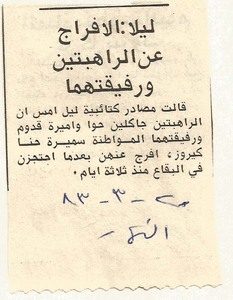 ليلا: الافراج
عن الراهبتين
ورفيقتهما
قالت مصادر كتائبية ليل امس ان
الراهبتين جاكلين حوا واميرة قدوم
ورفيقتهما المواطنة سميرة حنا
كيروز، افرج عنهن بعدما احتجزن
في البقاع منذ ثلاثة ايام.
٢٠-٣-٨٣
النهار